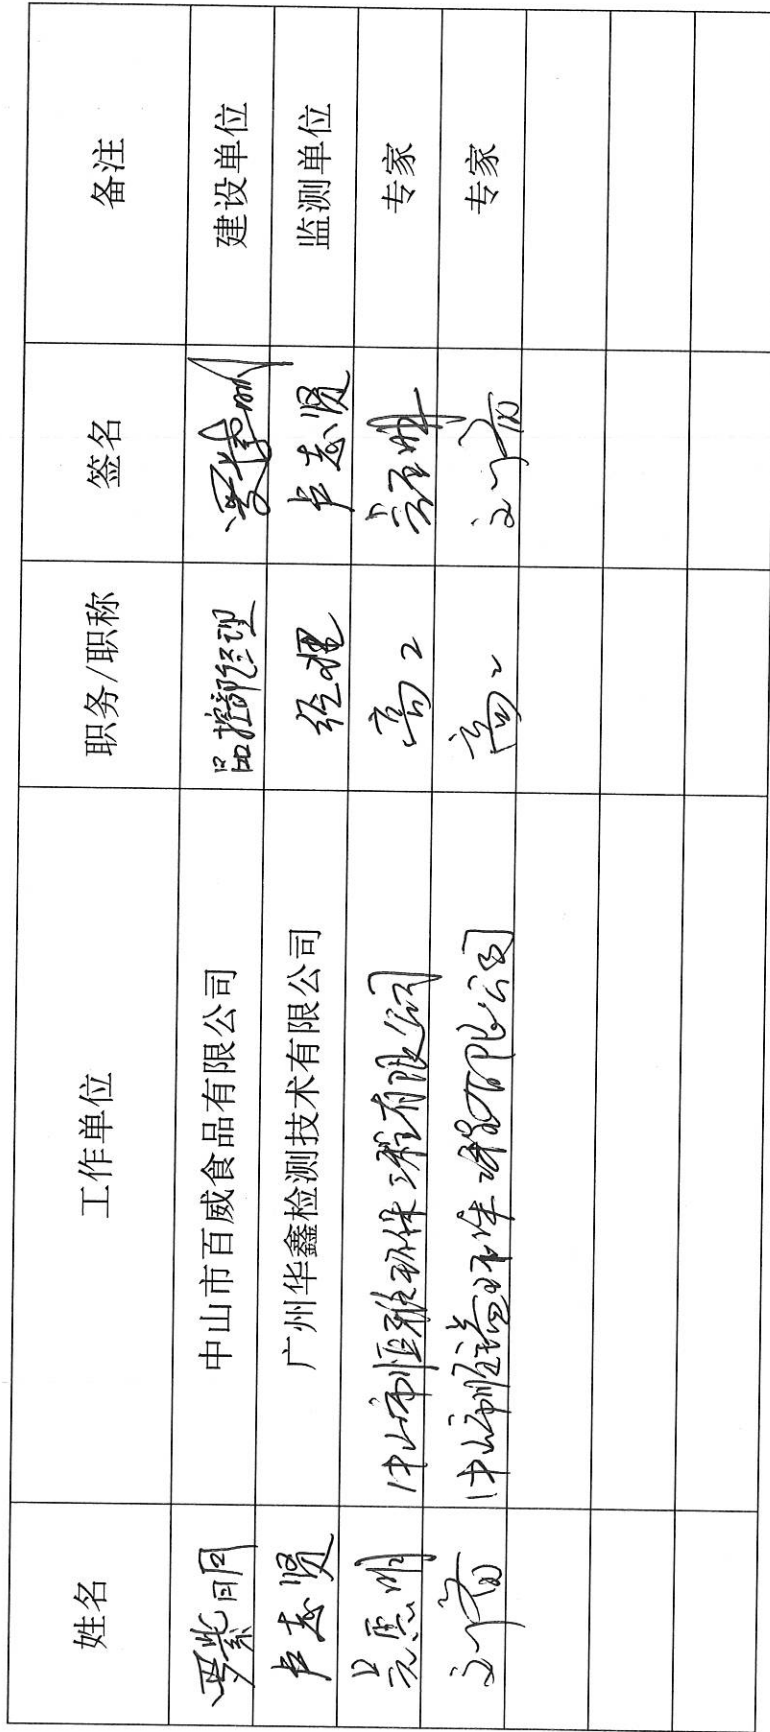 姓名 工作单位 职务/职称 签名 备注
中山市百威食品有限公司 品控部经理 建设单位
卢志贤 广州华鑫检测技术有限公司 经理 卢志贤 监测单位
中山市恒雅环保工程有限公司 高工 专家
中山市 有限公司 高工 专家